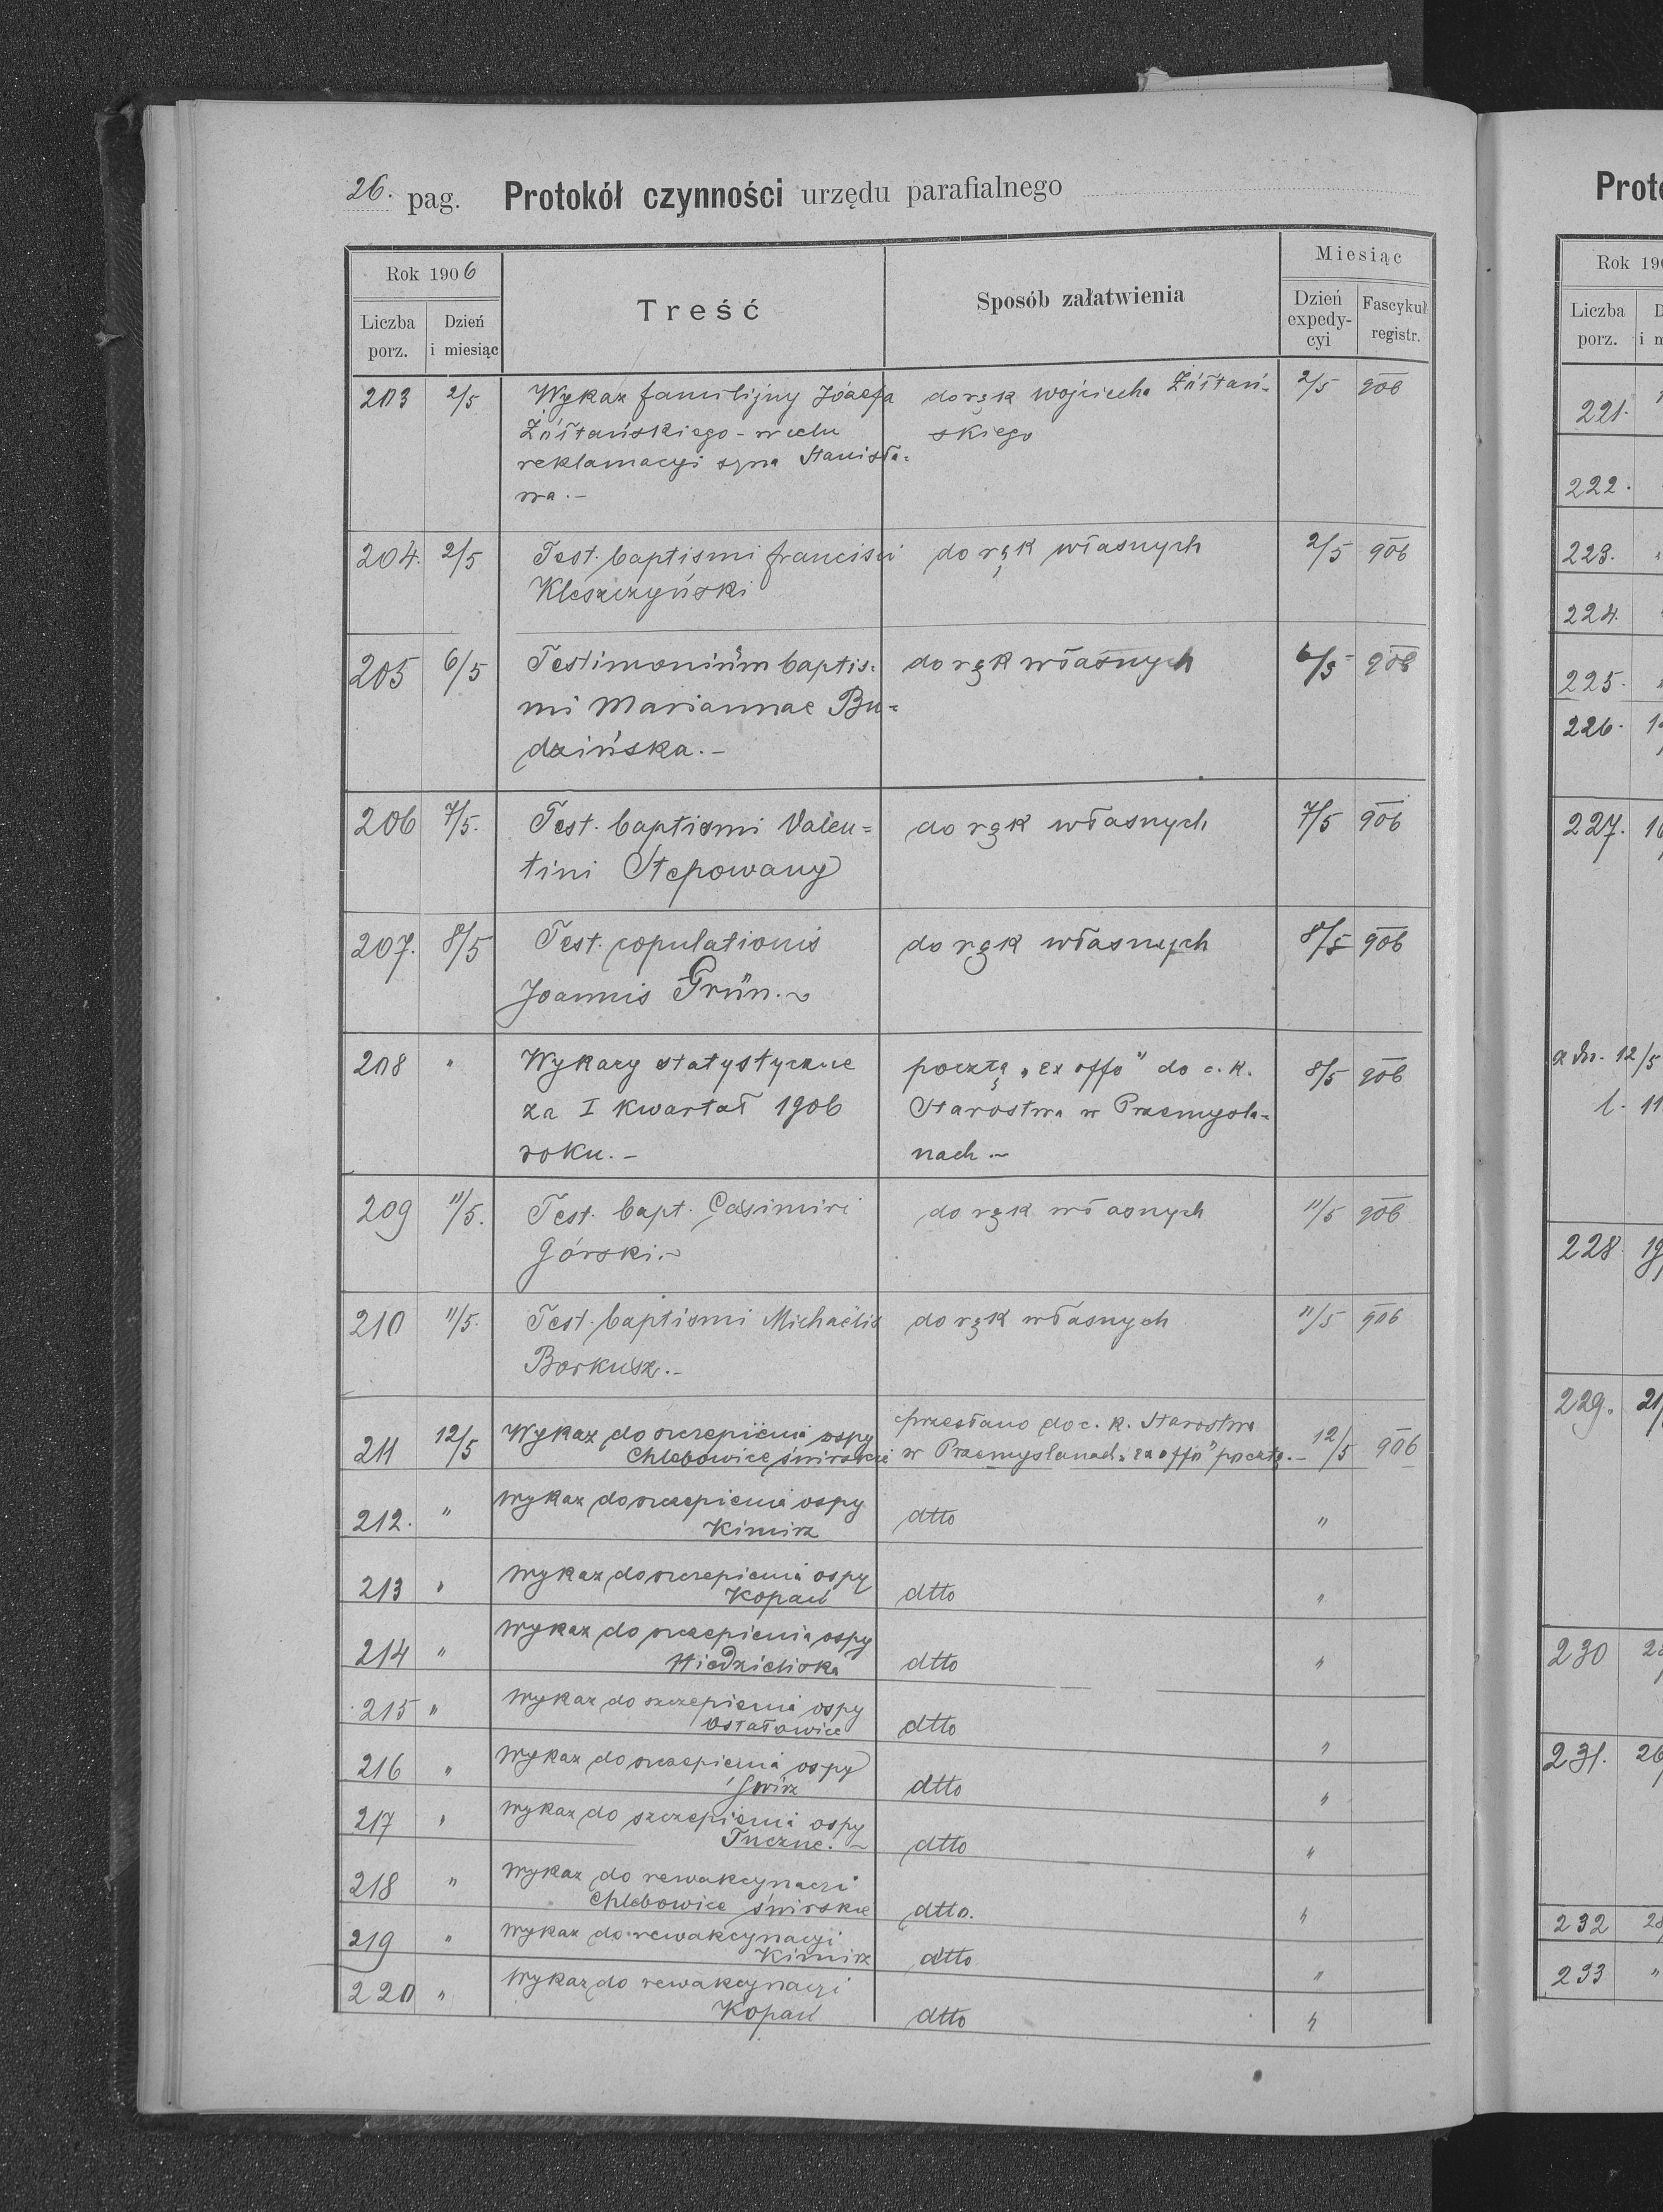 26. pag. Protokół czynności urzędu parafialnego
Rok 1906
Treść
Sposób załatwienia
Miesiąc
Liczba porz.
Dzień i miesiąc
Dzień expedycyi
Fascykuł registr.
203 2/5 Wykaz familijny Józefa do rąk Wojciecha Żółtań- 2/5 906
Żółtańskiego - w celu skiego
reklamacyi syna Stanisła=
wa.-
204. 2/5 Test. baptismi Francisci do rąk własnych 2/5 906
Kleszczyński
205 6/5 Testimonium baptis= do rąk własnych 6/5 906
mi Mariannae Bu=
dzińska.-
206 7/5. Test. baptismi Valen= do rąk własnych 7/5 906
tini Stepowany
207. 8/5 Test. copulationis do rąk własnych 8/5 906
Joannis Grün.~
208 " Wykazy statystyczne pocztą „ex offo" do c. k. 8/5 906
za I kwartał 1906 Starostwa w Przemyśla=
roku.- nach.~
209 11/5. Test. bapt. Casimiri do rąk własnych 11/5 906
Górski.~
210 11/5. Test. baptismi Michaëlis do rąk własnych 11/5 906
Borkusz.-
211 12/5 Wykaz do szczepienia ospy przesłano do c. k. Starostwa 12/5 906
Chlebowice świrskie w Przemyślanach „ex offo" pocztą.-
212. " Wykaz do szczepienia ospy dtto "
Kimirz
213 " Wykaz do szczepienia ospy dtto "
Kopań
214 " Wykaz do szczepienia ospy dtto "
Niedzieliska
215 " Wykaz do szczepienia ospy dtto "
Ostałowice
216 " Wykaz do szczepienia ospy dtto "
Świrz
217 " Wykaz do szczepienia ospy dtto "
Tuczne.~
218 " Wykaz do rewakcynacyi dtto. "
Chlebowice świrskie
219 " Wykaz do rewakcynacyi dtto "
Kimirz
220 " Wykaz do rewakcynacyi dtto "
Kopań
Rok 190
Liczba porz.
221.
222.
223.
224.
225.
226.
227.
12/5
228.
229.
230
231.
232
233 "